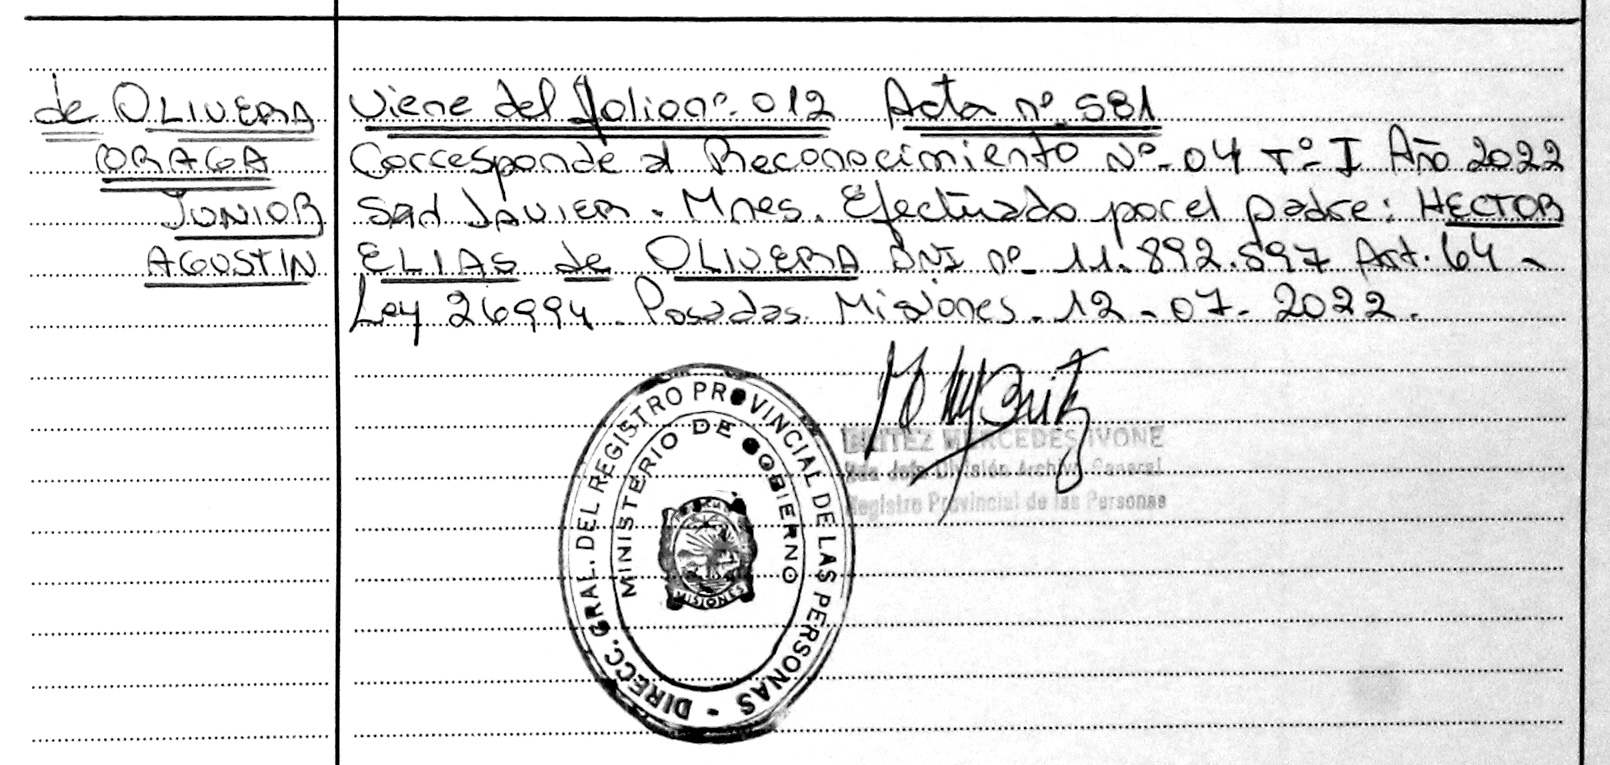 de OLIVERA
ORAGA
JUNIOR
AGUSTIN
Viene del folio nº. 012 Acta nº 581
Corresponde al Reconocimiento Nº-04 Tº-I Año 2022
San JAVIER. Mnes. Efectuado por el padre: HECTOR
ELIAS de OLIVERA DNI nº 11.892.597 Art. 64 -
Ley 26994. Posadas Misiones. 12-07-2022.
DIRECC. GRAL. DEL REGISTRO PROVINCIAL DE LAS PERSONAS -
MINISTERIO DE GOBIERNO
MISIONES
BENITEZ MERCEDES IVONE
Jefa División Archivo General
Registro Provincial de las Personas